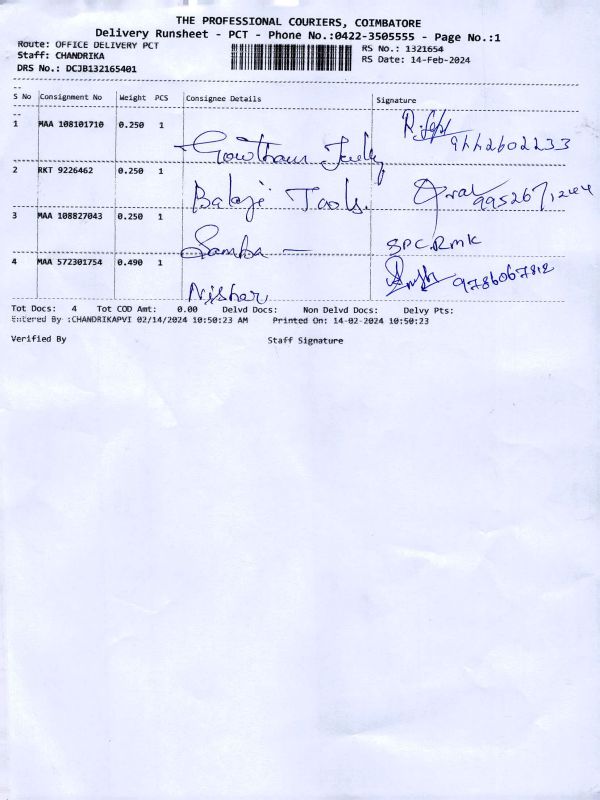 THE PROFESSIONAL COURIERS, COIMBATORE
Delivery Runsheet - PCT - Phone No.:0422-3505555 - Page No.:1
Route: OFFICE DELIVERY PCT
RS No.: 1321654
Staff: CHANDRIKA
RS Date: 14-Feb-2024
DRS No.: DCJB132165401
S No Consignment No Weight PCS Consignee Details Signature
1 MAA 108101710 0.250 1
Gowtham 9442602233
2 RKT 9226462 0.250 1
Balaji Tools.
3 MAA 108827043 0.250 1
Samba — SPC.RMK
4 MAA 572301754 0.490 1
Nishar 9786067812
Tot Docs: 4 Tot COD Amt: 0.00 Delvd Docs: Non Delvd Docs: Delvy Pts:
Entered By :CHANDRIKAPVI 02/14/2024 10:50:23 AM Printed On: 14-02-2024 10:50:23
Verified By Staff Signature